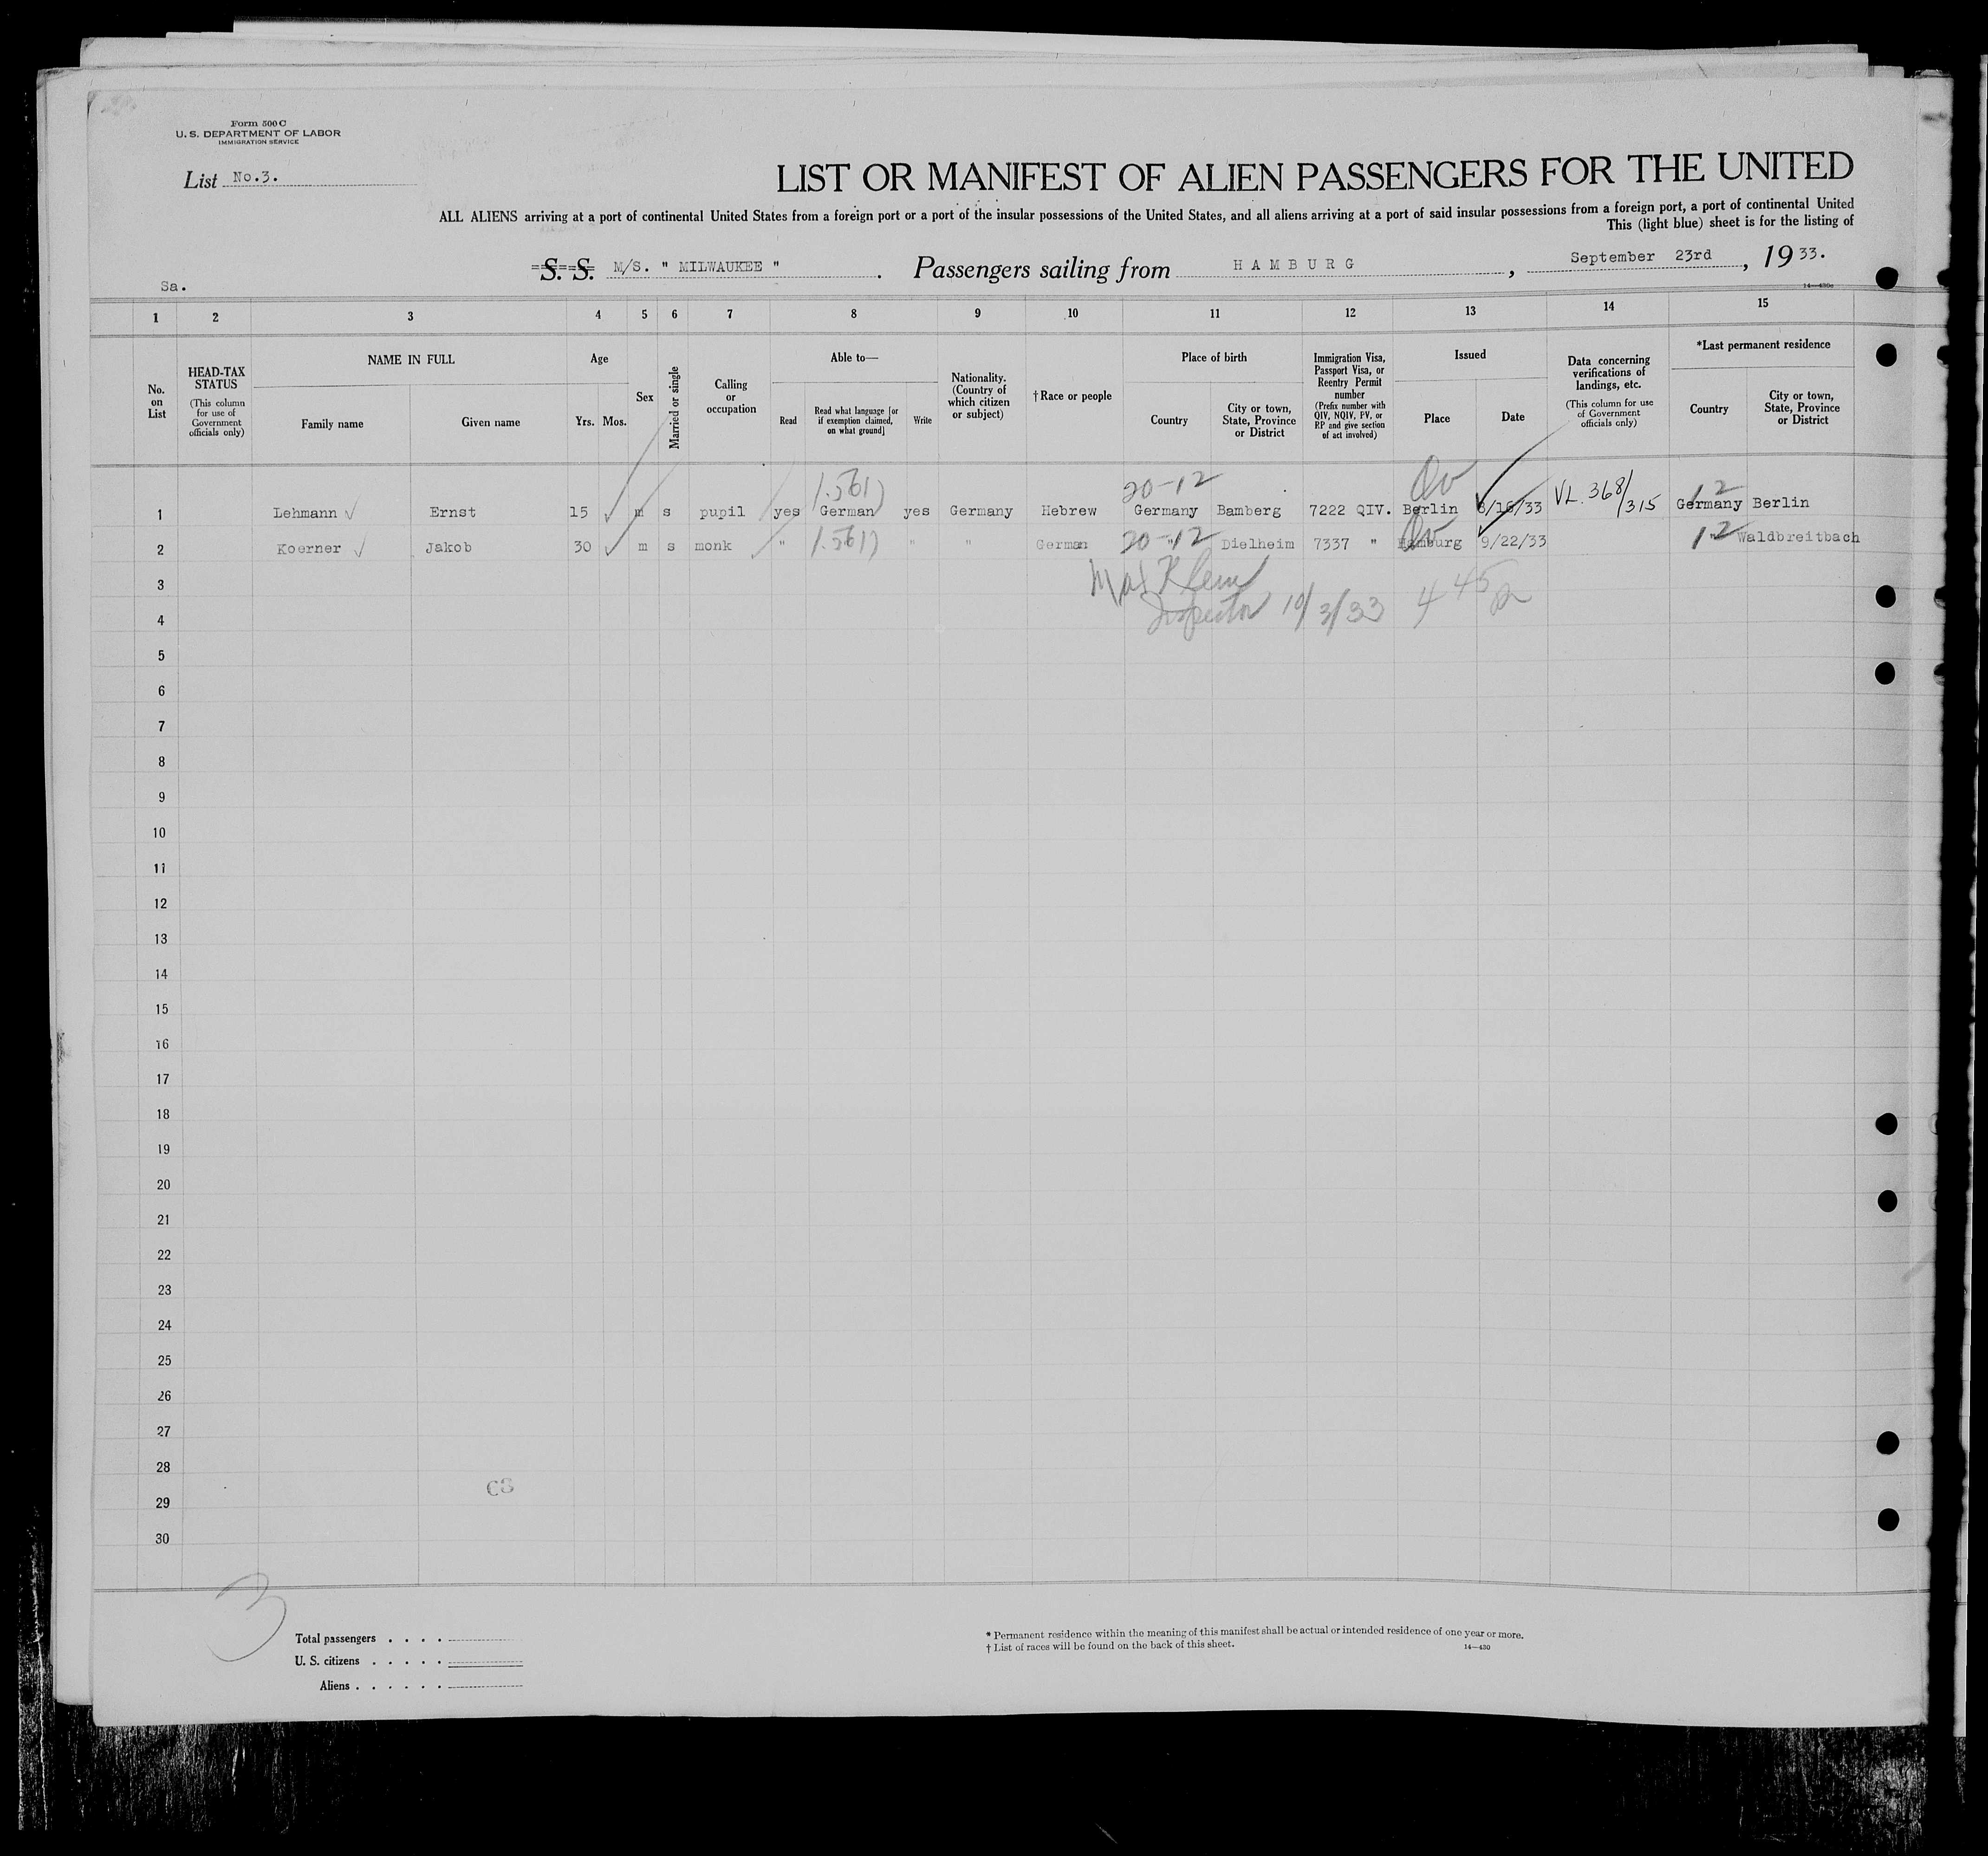 Form 500 C
U. S. DEPARTMENT OF LABOR
IMMIGRATION SERVICE
List No.3.
LIST OR MANIFEST OF ALIEN PASSENGERS FOR THE UNITED
ALL ALIENS arriving at a port of continental United States from a foreign port or a port of the insular possessions of the United States, and all aliens arriving at a port of said insular possessions from a foreign port, a port of continental United
This (light blue) sheet is for the listing of
S. S. M/S. " MILWAUKEE " . Passengers sailing from H A M B U R G , September 23rd , 19 33.
Sa.
14—430a
1 2 3 4 5 6 7 8 9 10 11 12 13 14 15
No. on List
HEAD-TAX STATUS
(This column for use of Government officials only)
NAME IN FULL
Family name Given name
Age
Yrs. Mos.
Sex
Married or single
Calling or occupation
Able to—
Read
Read what language [or if exemption claimed, on what ground]
Write
Nationality. (Country of which citizen or subject)
†Race or people
Place of birth
Country
City or town, State, Province or District
Immigration Visa, Passport Visa, or Reentry Permit number
(Prefix number with QIV, NQIV, PV, or RP and give section of act involved)
Issued
Place Date
Data concerning verifications of landings, etc.
(This column for use of Government officials only)
*Last permanent residence
Country
City or town, State, Province or District
20-12 12
1 Lehmann Ernst 15 m s pupil yes German yes Germany Hebrew Germany Bamberg 7222 QIV. Berlin 8/16/33 VL. 368/315 Germany Berlin
2 Koerner Jakob 30 m s monk " " " German 20-12 " Dielheim 7337 " Hamburg 9/22/33 12 " Waldbreitbach
3 Max Klein
4 Inspector 10/3/33 4 45 p
5
6
7
8
9
10
11
12
13
14
15
16
17
18
19
20
21
22
23
24
25
26
27
28
29
30
3
Total passengers . . . .
U. S. citizens . . . . .
Aliens . . . . . .
* Permanent residence within the meaning of this manifest shall be actual or intended residence of one year or more.
† List of races will be found on the back of this sheet. 14—430